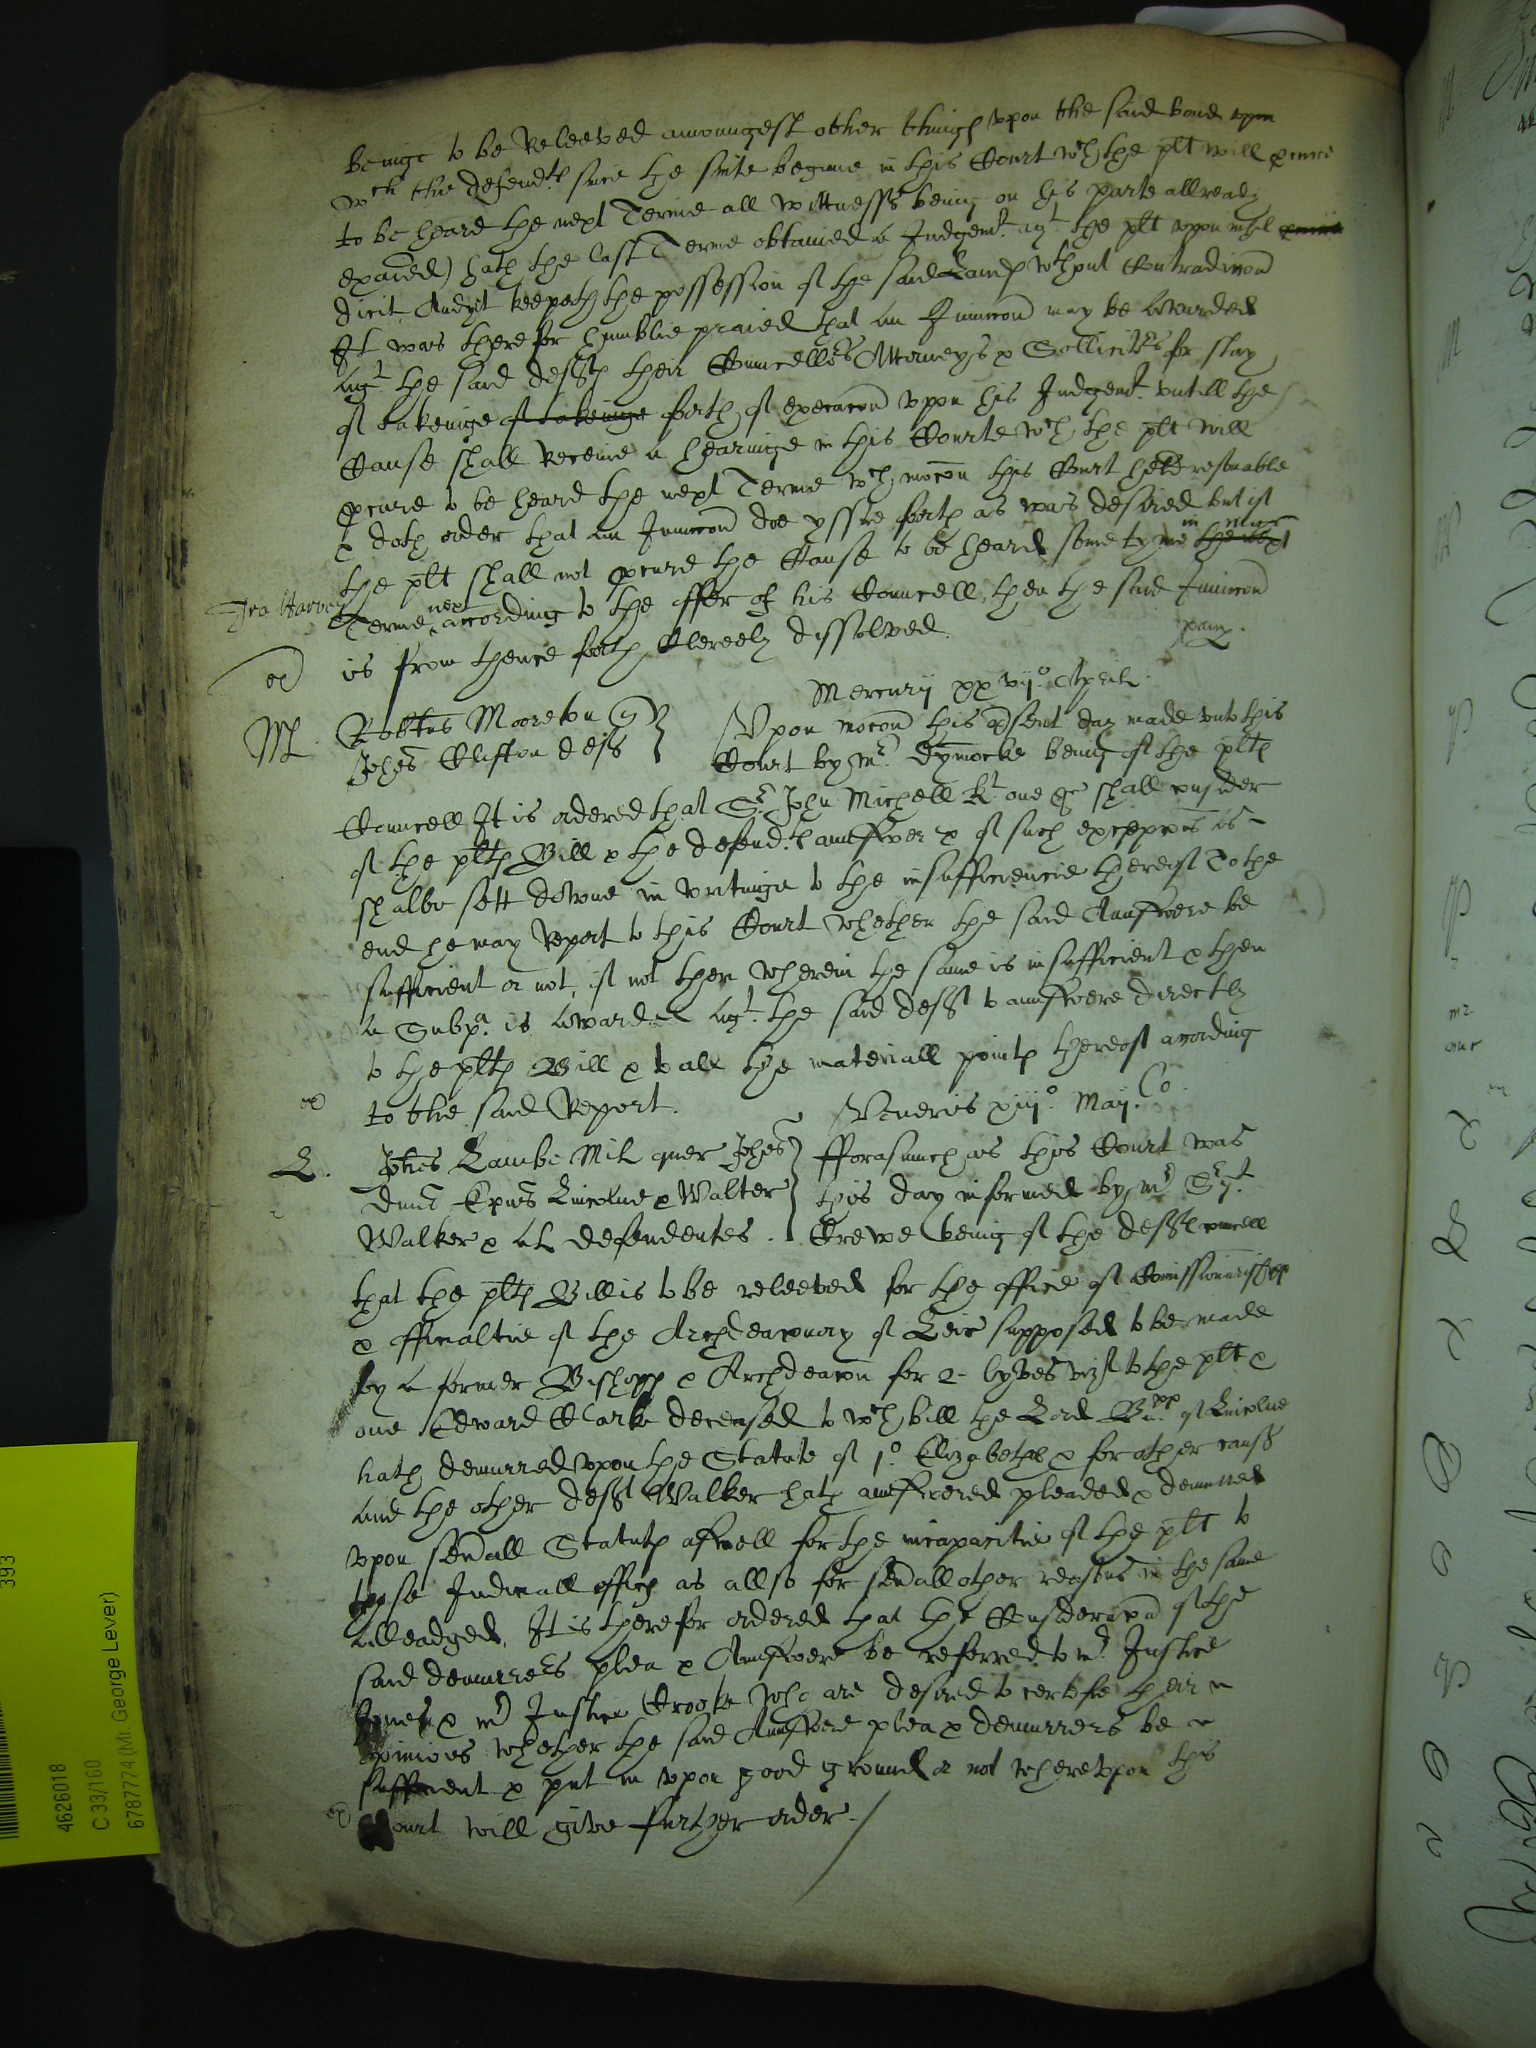 beinge to be Releeved amoungest other thinges vpon the said bond vpon
wch the defendts since the suite begune in this Court wch the plt will pcure
to be heard the next Terme all wittnesses being on his parte allready
exaied) hath the last Terme obtained a Judgemt agt the plt vpon nihil
dicit And yet keepeth the possession of the said Lands wthout Contradiccon
It was therefor humblie praied that an Iniunccon may be awarded
agt the said defts their Councellors Attorneys & Sollicitors for stay
of takeinge of takeinge forth of execucon vpon his Judgemt vntill the
Cause shall Receive a hearinge in this Courte wch the plt will
pcure to be heard the next Terme wch mocon this Court held resonable
& doth order that an Iniunccon doe yssue forth as was desired but if
the plt shall not pcure the Cause to be heard some tyme in the next
Terme next according to the offer of his Councell, then the said Iniunccon
Fra Harvey
is from thence forth Cleerely dissolved.
ex
Mercurij xxvijo Aprilis
M Robtus Mooreton qr
Johes Clifton defs
Vpon mocon this psent day made vnto this
Court by Mr Dymocke being of the plts
Councell It is ordered that Sr John Michell Kt one &c shall consider
of the plts Bill & the defendts aunswer & of such excepcons as
shalbe sett downe in writinge to the insufficiencie thereof To the
end he may Report to this Court whether the said Aunswere be
sufficient or not, if not then wherein the same is insufficient & then
a Subpa is awarded agt the said deft to aunswere directly
to the plts Bill & to all the materiall points thereof according
to the said Report.
ex
Veneris xiijo Maij
L. Johes Lambe Mil quer Johes
Dnus Epus Lincolne & Walter
Walker & al defendentes.
Fforasmuch as this Court was
this day informed by Mr Srgt
Crewe being of the defts councell
that the plts Bill is to be releeved for the office of Comissionrishipp
& officialtie of the Archdeaconry of Leic supposed to be made
by a former Bishopp & Archdeacon for 2 lyves vizt to the plt &
one Edward Clarke deceased to wch bill the Lord Bpp of Lincolne
hath demurred vpon the Statute of 1o Elizabethe & for other causes
and the other deft Walker hath aunswered pleaded & demurred
vpon seuall Statuts aswell for the incapacitie of the plt to
those Judiciall offices as allso for seuall other reasons in the same
alleadged. It is therefor ordered that the Consideracon of the
said demurrers plea & Aunswere be referred to Mr Justice
Jones & Mr Justice Crooke who are desired to certefie their
opinions whether the said Aunswere plea & demurrers be
sufficient & put in vpon good ground or not wherevpon this
ex
Court will give further order./
393
4626018
C 33/160
6787774 (Mr. George Lever)